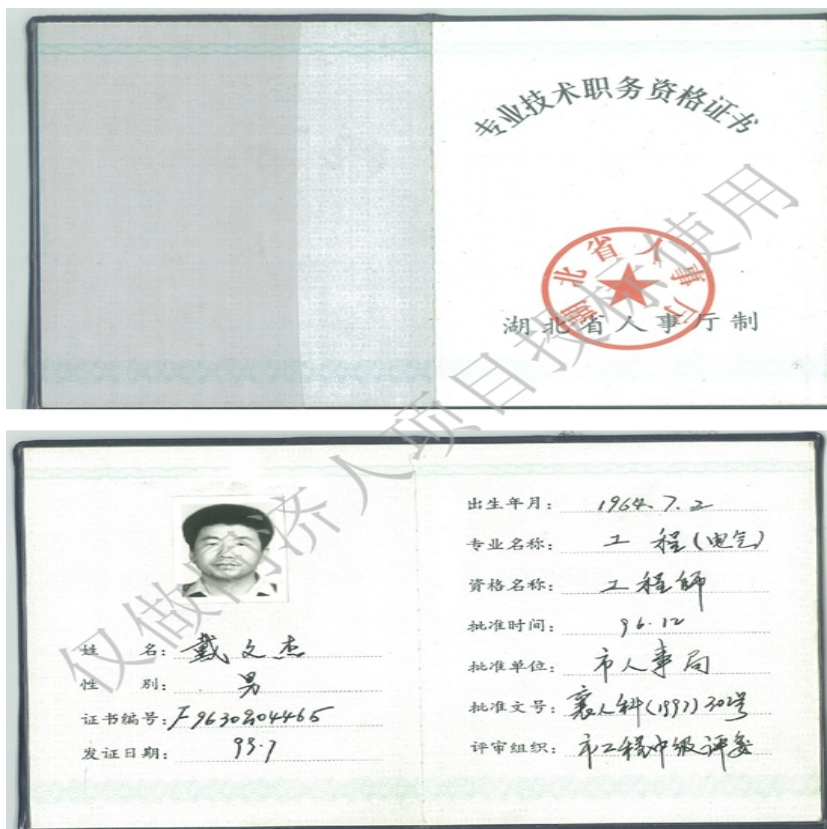 专业技术职务资格证书
湖北省人事厅
湖北省人事厅制
姓 名: 戴文杰
性 别: 男
证书编号: F9630204465
发证日期: 99.7
出生年月: 1964.7.2
专业名称: 工程(电气)
资格名称: 工程师
批准时间: 96.12
批准单位: 市人事局
批准文号: 襄人科(1997)302号
评审组织: 市工程中级评委